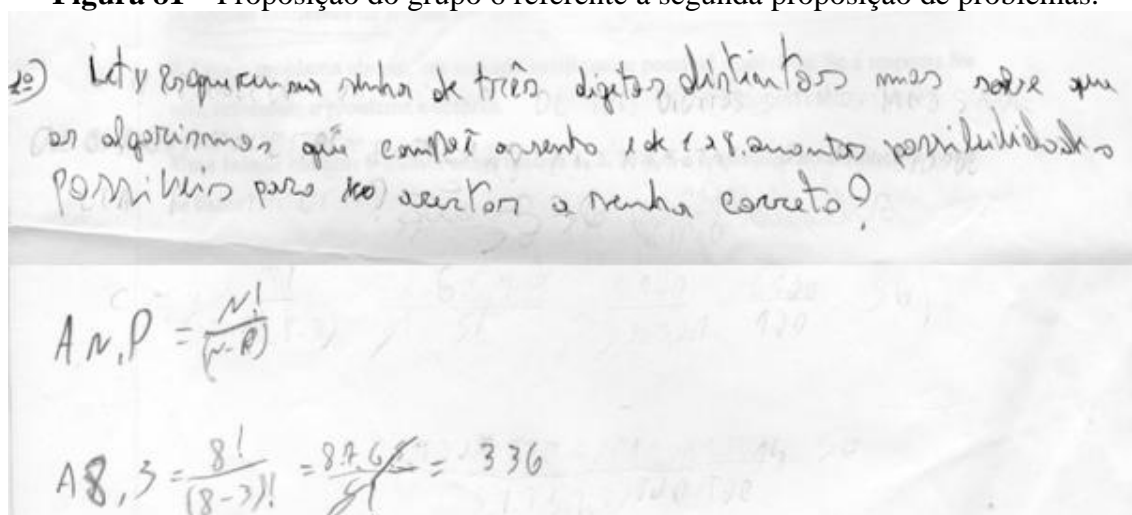 Figura 61 – Proposição do grupo 6 referente à segunda proposição de problemas.
2º) Lety esqueceu sua senha de três digetos distintos mas sabe que
os algorismos que compõe a senha de 1 a 8. quantas possibilidades
possiveis para acertar a senha correta?
A N,P = N!/(N-P)
A8,3 = 8!/(8-3)! = 8.7.6.5!/5! = 336